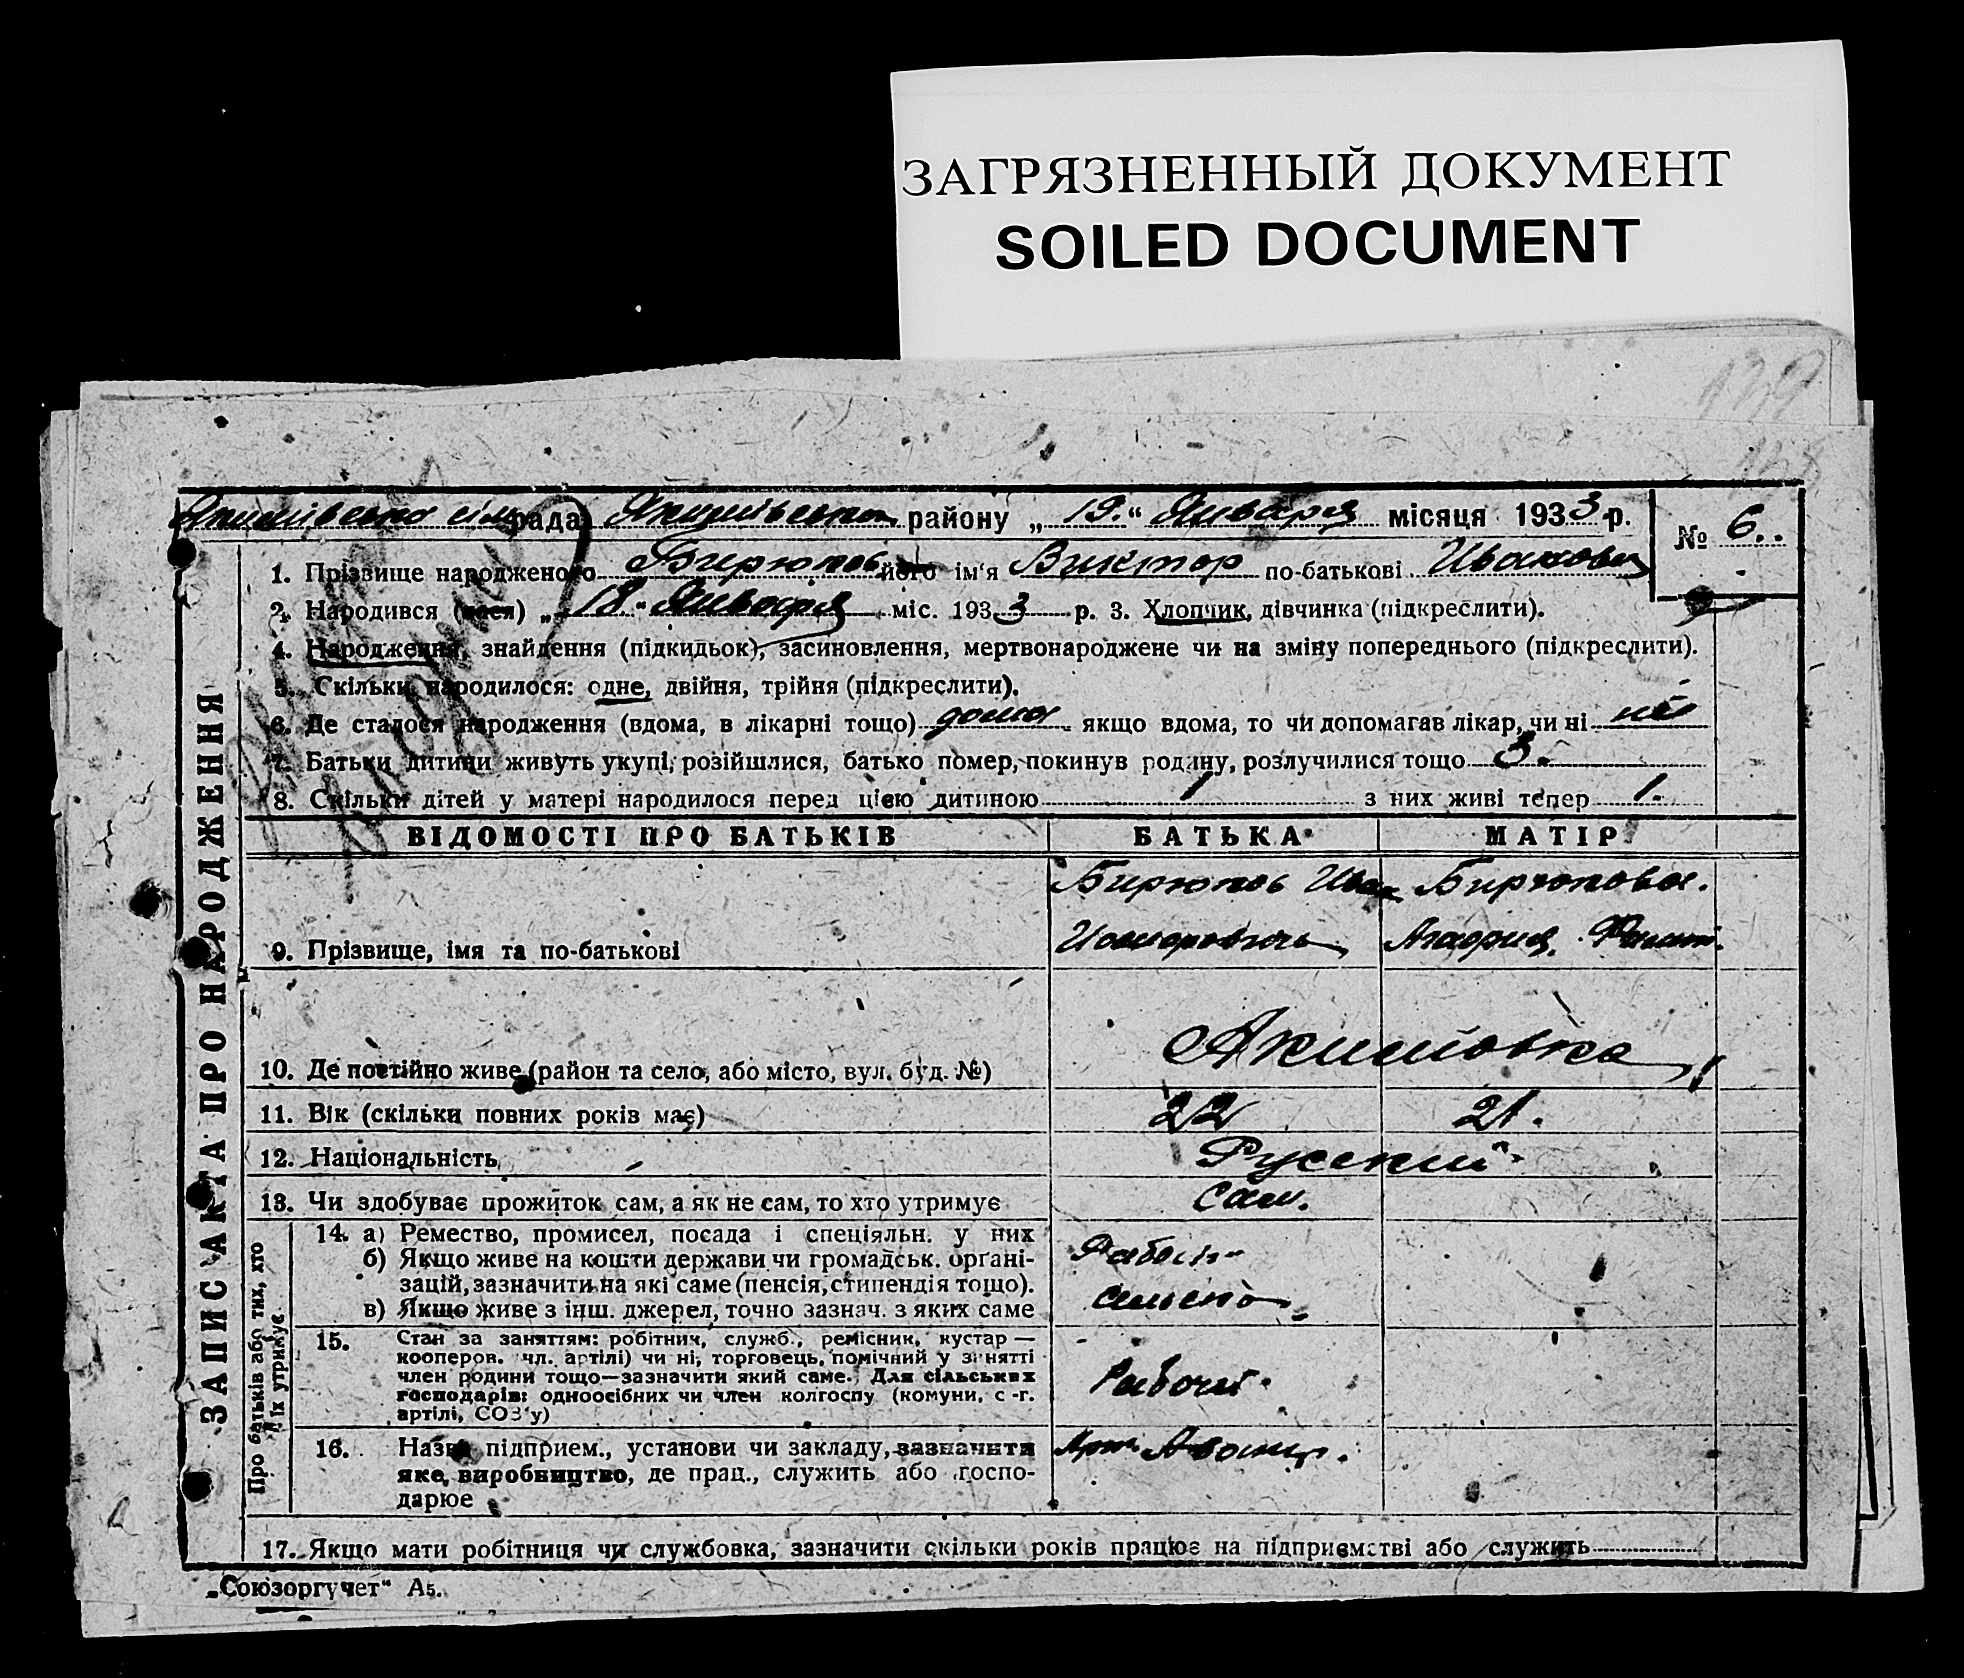 ЗАГРЯЗНЕННЫЙ ДОКУМЕНТ
SOILED DOCUMENT
139
рада районy „19.“ Января місяця 1933 р.
№ 6.
1. Прізвище народженого Бирюков його ім‘я Виктор по-батькові Иванович
2. Народився (лася) „18“ Января міс. 1933 р. 3. Хлопчик, дівчинка (підкреслити).
4. Народження, знайдення (підкидьок), засиновлення, мертвонароджене чи на зміну попереднього (підкреслити).
5. Скільки народилося: одне, двійня, трійня (підкреслити).
6. Де сталося народження (вдома, в лікарні тощо) дома якщо вдома, то чи допомагав лікар, чи ні
7. Батьки дитини живуть укупі, розійшлися, батько помер, покинув родину, розлучилися тощо
8. Скільки дітей у матері народилося перед цією дитиною 1 з них живі тепер 1.
ЗАПИС АКТА ПРО НАРОДЖЕННЯ
ВІДОМОСТІ ПРО БАТЬКІВ БАТЬКА МАТІР
Бирюков Иван Бирюкова.
9. Прізвище, імя та по-батькові
10. Де постійно живе (район та село, або місто, вул. буд. №) Акимовка
11. Вік (скільки повних років має) 22 21.
12. Національність Русский
13. Чи здобуває прожиток сам, а як не сам, то хто утримує сам.
Про батьків або тих, хто їх утримує
14. а) Ремество, промисел, посада і спеціяльн. у них
б) Якщо живе на кошти держави чи громадськ. органі-
зацій, зазначити на які саме (пенсія, стипендія тощо).
в) Якщо живе з інш. джерел, точно зазнач. з яких саме
15. Стан за заняттям: робітнич, служб., ремісник, кустар —
кооперов. чл. артілі) чи ні, торговець, помічний у занятті
член родини тощо—зазначити який саме. Для сільських
господарів: одноосібних чи член колгоспу (комуни, с.-г.
артілі, СОЗ‘у)
Рабочий
16. Назва підприєм., установи чи закладу, зазначити
яке, виробництво, де прац., служить або госпо-
дарює
17. Якщо мати робітниця чи службовка, зазначити скільки років працює на підприємстві або служить
„Союзоргучет“ А5.